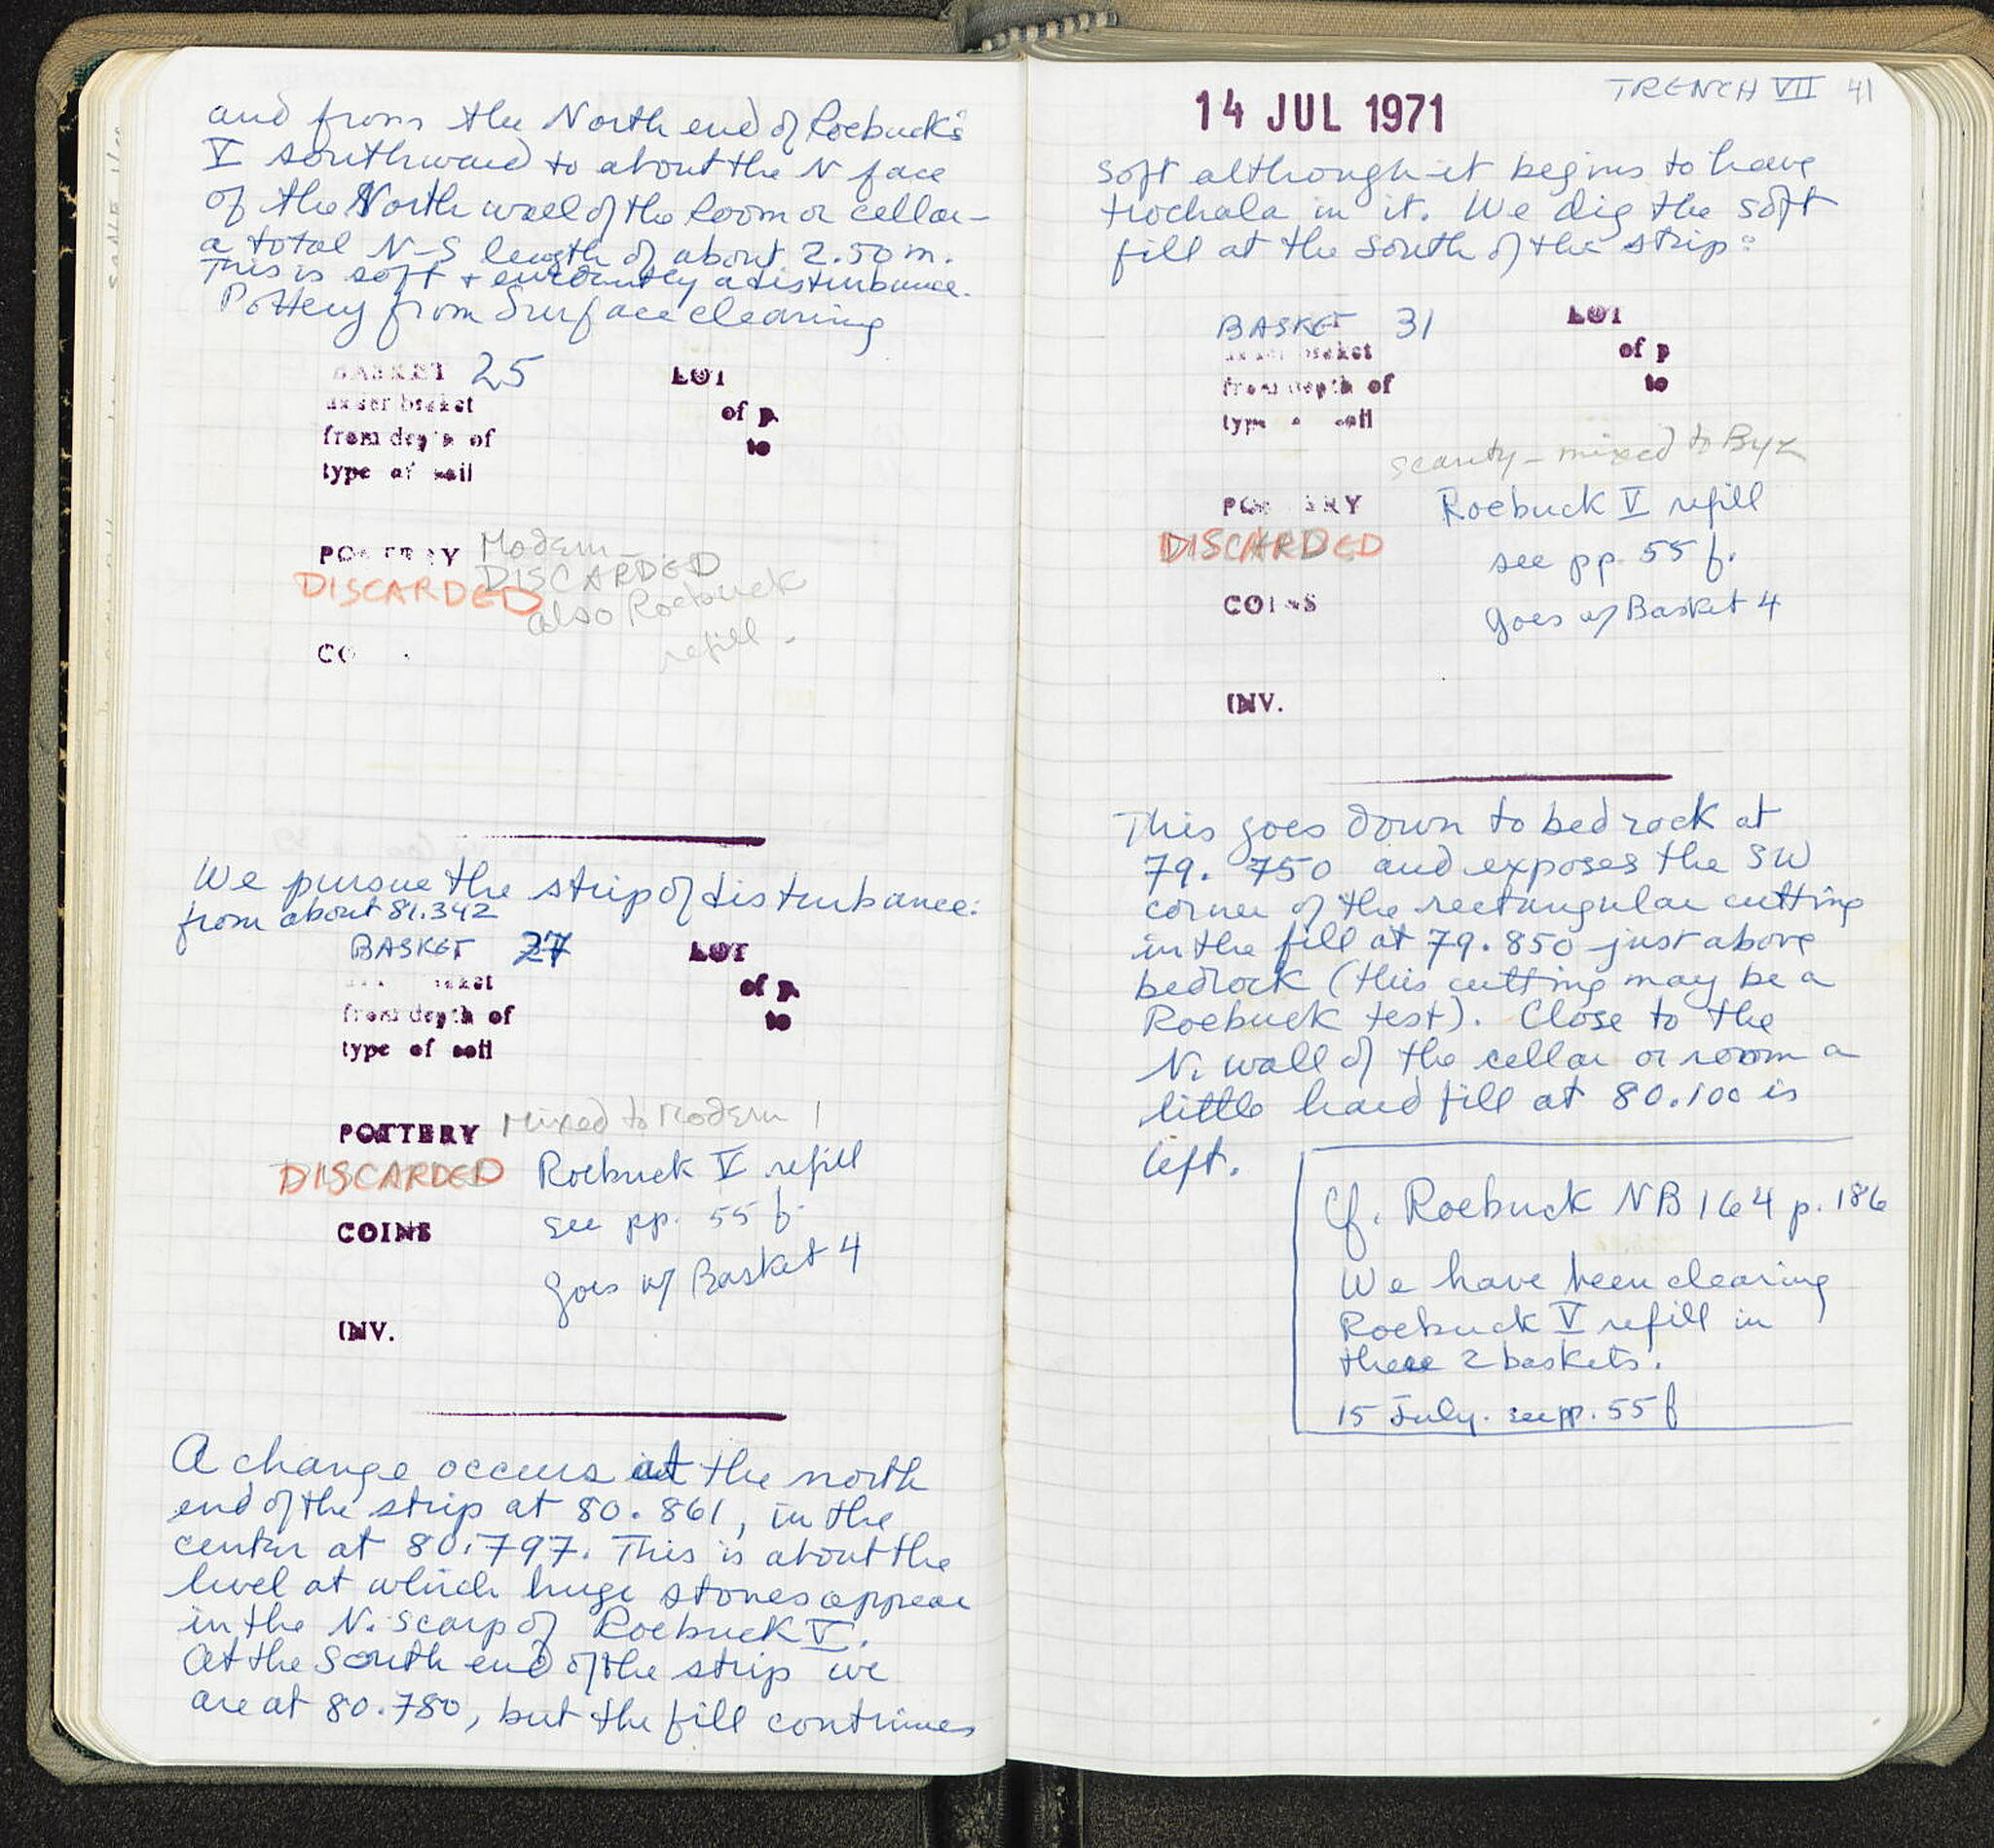 and from the North end of Roebuck's
V southward to about the N face
of the North wall of the Room or cellar –
a total N–S length of about 2.50 m.
This is soft + evidently a disturbance.
Pottery from Surface clearing
BASKET 25 LOT
under basket of p.
from depth of to
type of soil
POTTERY Modern –
DISCARDED DISCARDED
also Roebuck
refill –
CO
We pursue the strip of disturbance:
from about 81.342
BASKET 27 LOT
basket of p.
from depth of to
type of soil
POTTERY Mixed to Modern
DISCARDED Roebuck V refill
see pp. 55 f.
COINS
goes w/ Basket 4
INV.
A change occurs at the north
end of the strip at 80.861, in the
center at 80.797. This is about the
level at which huge stones appear
in the N. scarp of Roebuck V.
At the South end of the strip we
are at 80.780, but the fill continues
TRENCH VII 41
14 JUL 1971
soft although it begins to have
trochala in it. We dig the soft
fill at the south of the strip:
BASKET 31 LOT
under basket of p
from depth of to
type of soil
scanty – mixed to Byz
POTTERY Roebuck V refill
DISCARDED see pp. 55 f.
COINS goes w/ Basket 4
INV.
This goes down to bedrock at
79.750 and exposes the SW
corner of the rectangular cutting
in the fill at 79.850 just above
bedrock (this cutting may be a
Roebuck test). Close to the
N. wall of the cellar or room a
little hard fill at 80.100 is
left.
Cf. Roebuck NB 164 p. 186
We have been clearing
Roebuck V refill in
these 2 baskets.
15 July. see pp. 55 f